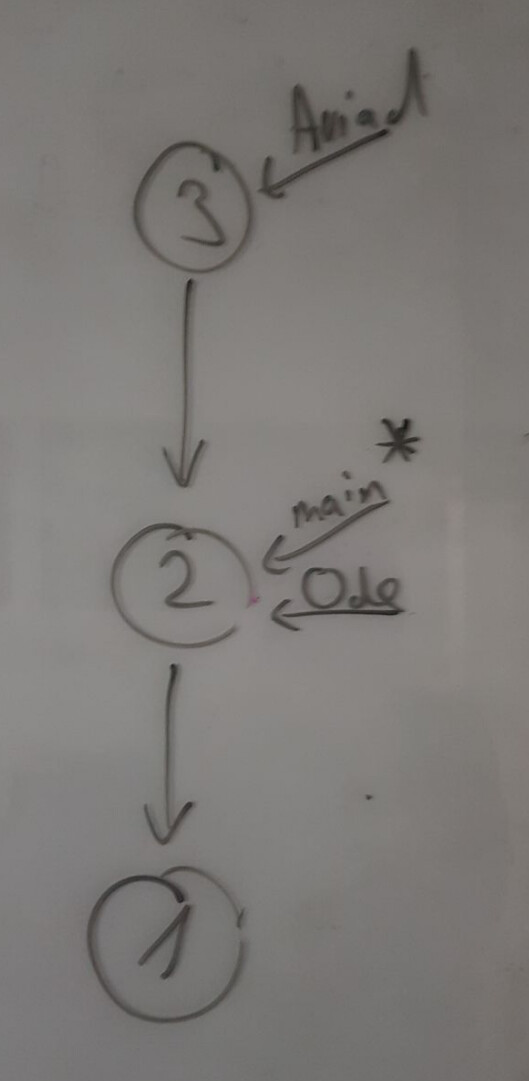 Aviad
3
*
main
2
Ode
1